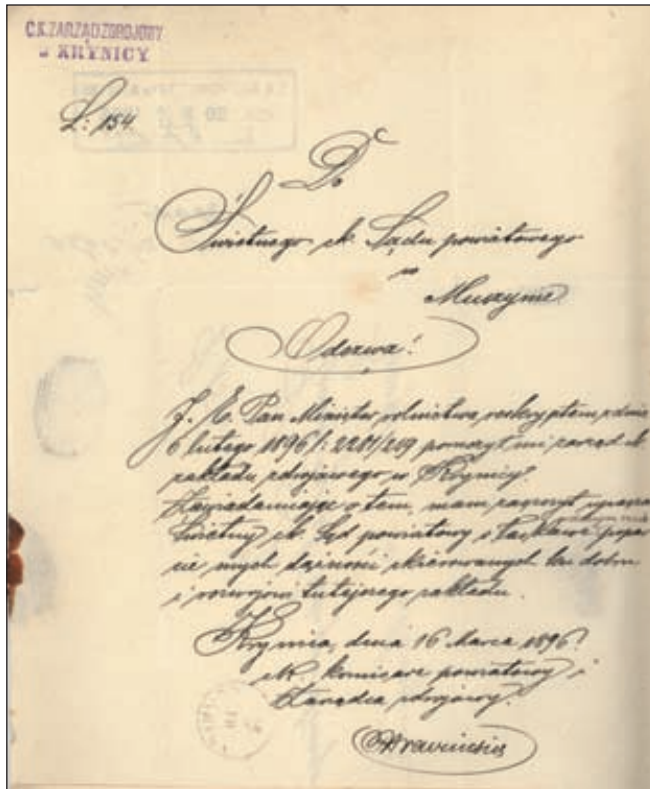 C.K. ZARZĄD ZDROJOWY
w KRYNICY
L: 154.
Do
Świetnego ck. Sądu powiatowego
w
Muszynie
Odezwa!
J. E. Pan Minister rolnictwa reskryptem z dnia
6 lutego 1896 l: 2281/219 poruczył mi zarząd ck.
zakładu zdrojowego w Krynicy.
Zawiadamiając o tem, mam zaszczyt
Świetny ck. Sąd powiatowy o łaskawe
cie mych dążności skierowanych ku dobru
i rozwojowi tutejszego zakładu.
Krynica, dnia 16 Marca 1896
ck. komisarz powiatowy i
Zarządca zdrojowy.